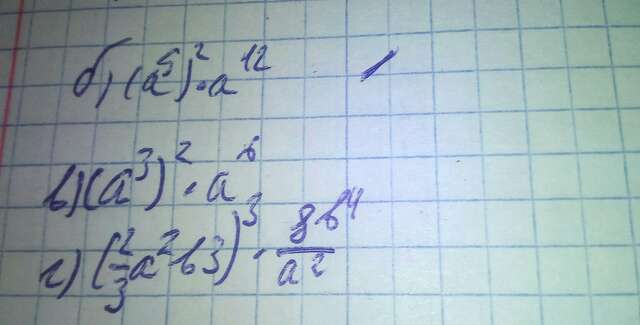 б) (a⁵)² · a¹²
в) (a³)² · a⁶
г) (2/3 a² b³)³ · 8b⁴/a²